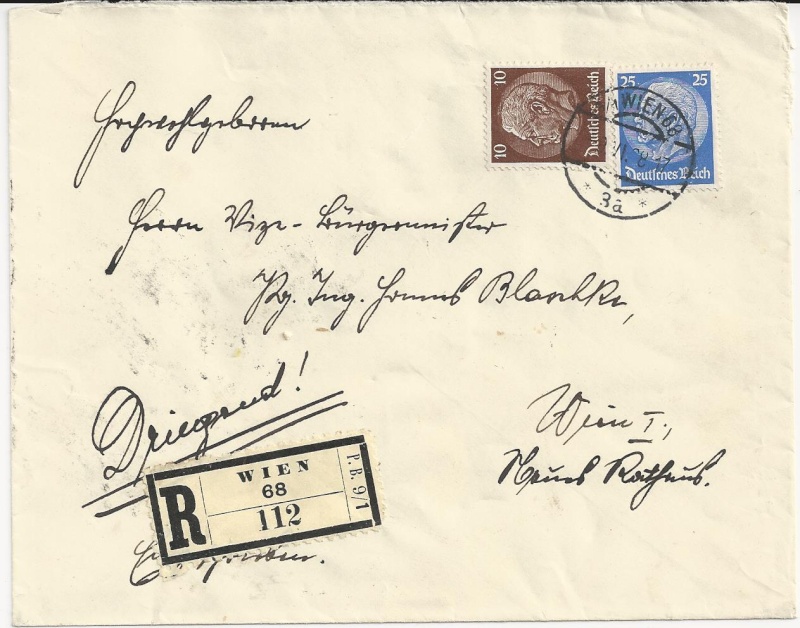 10
10
Deutsches Reich
25
25
Deutsches Reich
WIEN 68
3a
Hochwohlgeboren
Herrn Vize-Bürgermeister
Pg. Ing. Hanns Blaschke,
Dringend!
Wien I.,
Neues Rathaus.
R
WIEN
68
112
P.B. 9/1